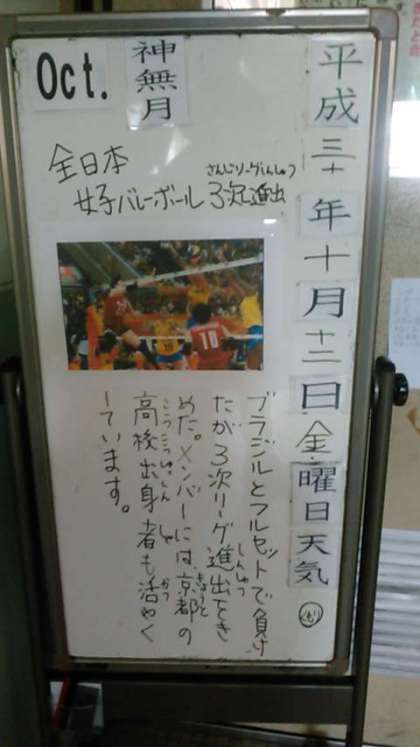 平成三十年十月十二日金曜日天気 くもり
神無月
Oct.
全日本
さんじリーグしんしゅつ
女子バレーボール3次進出
10
ブラジルとフルセットで負け
たが3次リーグ進出をき
しんしゅつ
めた。メンバーには京都の
きょうと
高校出身者も活やく
こうこうしゅっしんしゃ かつ
しています。